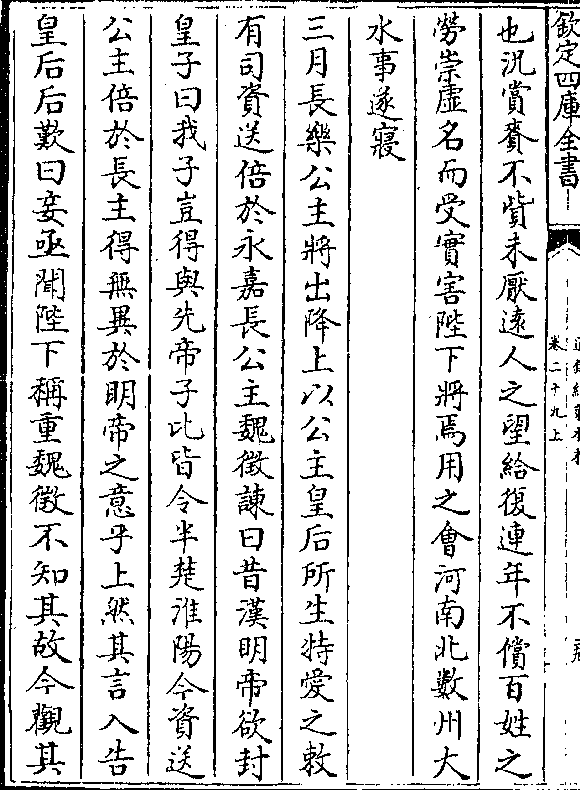 欽定四庫全書
卷二十九上
也況賞賚不貲未厭遠人之望給復連年不償百姓之
勞崇虛名而受實害陛下將焉用之會河南北數州大
水事遂寢
三月長樂公主將出降上以公主皇后所生特愛之敕
有司資送倍於永嘉長公主魏徵諫曰昔漢明帝欲封
皇子曰我子豈得與先帝子比皆令半楚淮陽今資送
公主倍於長主得無異於明帝之意乎上然其言入告
皇后后歎曰妾亟聞陛下稱重魏徵不知其故今觀其